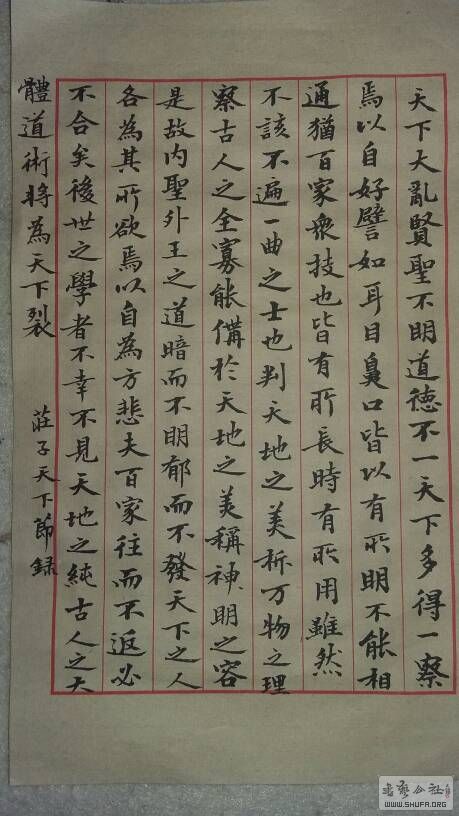 天下大亂賢聖不明道德不一天下多得一察
焉以自好譬如耳目鼻口皆以有所明不能相
通猶百家衆技也皆有所長時有所用雖然
不該不遍一曲之士也判天地之美析万物之理
察古人之全寡能備於天地之美稱神明之容
是故内聖外王之道暗而不明郁而不發天下之人
各為其所欲焉以自為方悲夫百家往而不返必
不合矣後世之學者不幸不見天地之純古人之大
體道術將為天下裂
莊子天下節録
書藝公社
WWW.SHUFA.ORG